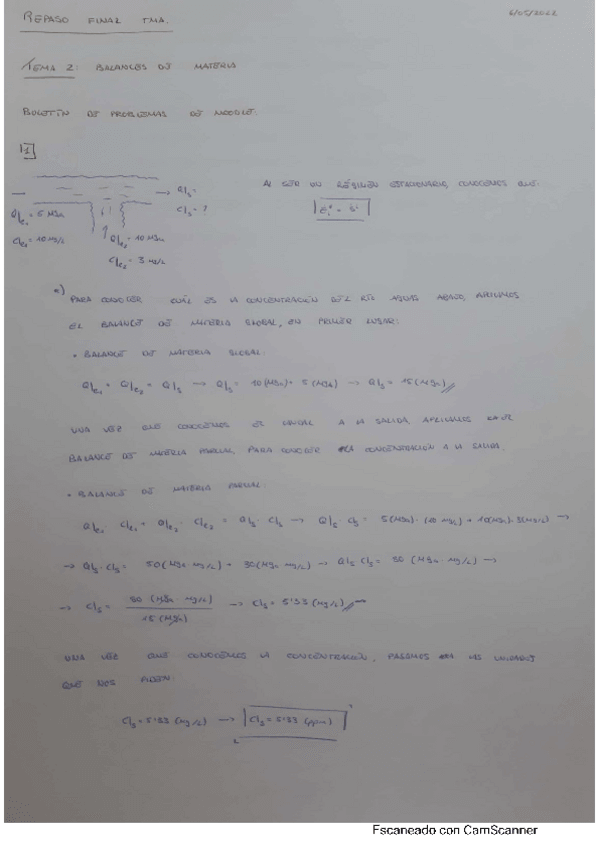 REPASO FINAL TMA. 6/05/2022
TEMA 2: BALANCES DE MATERIA
BOLETÍN DE PROBLEMAS DE MOODLE.
1
Q|s =
C|s = ?
Q|e₁ = 5 MGD
C|e₁ = 10 mg/L
Q|e₂ = 10 MGD
C|e₂ = 3 mg/L
AL SER UN RÉGIMEN ESTACIONARIO, CONOCEMOS QUE:
a) PARA CONOCER CUÁL ES LA CONCENTRACIÓN DEL RÍO AGUAS ABAJO, APLICAMOS
EL BALANCE DE MATERIA GLOBAL, EN PRIMER LUGAR:
• BALANCE DE MATERIA GLOBAL:
Q|e₁ + Q|e₂ = Q|s → Q|s = 10 (MGD) + 5 (MGD) → Q|s = 15 (MGD)
UNA VEZ QUE CONOCEMOS EL CAUDAL A LA SALIDA, APLICAMOS EL
BALANCE DE MATERIA PARCIAL, PARA CONOCER LA CONCENTRACIÓN A LA SALIDA.
• BALANCE DE MATERIA PARCIAL:
Q|e₁ · C|e₁ + Q|e₂ · C|e₂ = Q|s · C|s → Q|s · C|s = 5(MGD) · (10 mg/L) + 10(MGD) · 3(mg/L) →
→ Q|s · C|s = 50 (MGD · mg/L) + 30 (MGD · mg/L) → Q|s · C|s = 80 (MGD · mg/L) →
→ C|s = 80 (MGD · mg/L) / 15 (MGD) → C|s = 5'33 (mg/L) →
UNA VEZ QUE CONOCEMOS LA CONCENTRACIÓN, PASAMOS A LAS UNIDADES
QUE NOS PIDEN:
C|s = 5'33 (mg/L) → C|s = 5'33 (ppm)
Escaneado con CamScanner